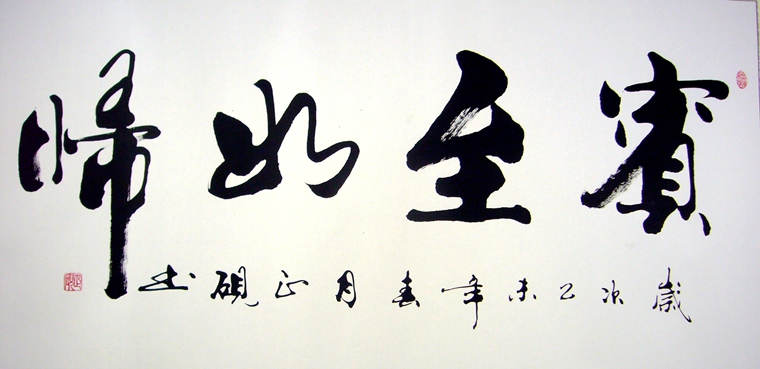 賓至如歸
歲次乙未年春月正硯書